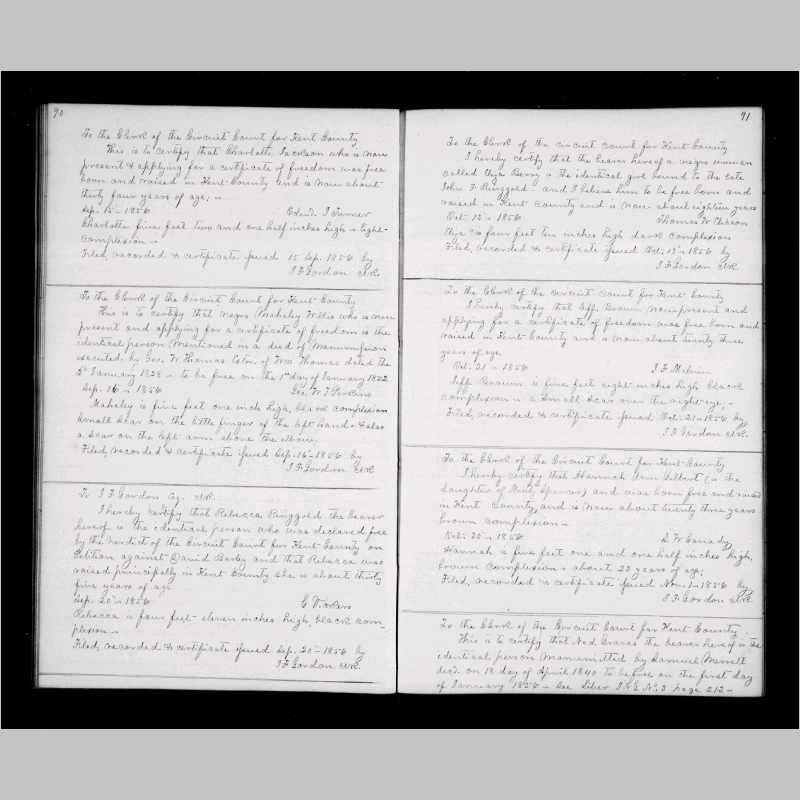 90
To the Clerk of the Circuit Court for Kent County
This is to certify that Charlotte Jackson who is now
present & applying for a certificate of freedom was free
born and raised in Kent County and is now about
thirty four years of age, –
Sep. 15 – 1856 Edwd. J Turner
Charlotte five feet two and one half inches high & light
complexion –
Filed, recorded & certificate issued 15 Sep. 1856 by
J F Gordon Clk.
To the Clerk of the Circuit Court for Kent County
This is to certify that negro Mahaley Willis who is now
present and applying for a certificate of freedom is the
identical person mentioned in a deed of Manumission
executed by Geo. W Thomas of Wm Thomas dated the
2d January 1828 – to be free on the 1st day of January 1852
Sep. 16 – 1856 Geo. W. T Perkins
Mahaley is five feet one inch high, black complexion
small scar on the little finger of the left hand – & also
a scar on the left arm above the elbow.
Filed, recorded & certificate issued Sep. 16 – 1856 by
J F Gordon Clk
To J F Gordon Clk.
I hereby certify that Rebecca Ringgold the bearer
hereof is the identical person who was declared free
by the verdict of the Circuit Court for Kent County on
Petition against David and that Rebecca was
raised principally in Kent County she is about thirty
five years of age
Sep. 20 – 1856
Rebecca is four feet – eleven inches high, black com
plexion –
Filed, recorded & certificate issued Sep. 20 – 1856 by
J F Gordon Clk.
91
To the Clerk of the circuit court for Kent County
I hereby certify that the bearer hereof a negro woman
called Berry is the identical bound to the late
John F. Ringgold – and I believe him to be free born and
raised in Kent County and is now about eighteen years
Oct. 13 – 1856 Thomas W
is four feet ten inches high dark complexion
Filed, recorded & certificate issued Oct. 13 – 1856 by
J F Gordon Clk.
To the Clerk of the circuit court for Kent County
I hereby certify that Jeff. Brown now present and
applying for a certificate of freedom was free born and
raised in Kent County and is now about twenty three
years of age
Oct. 21 – 1856 J. F.
Jeff Brown is five feet eight inches high black
complexion & small scar over the right eye, –
Filed, recorded & certificate issued Oct. 21 – 1856 by
J. F Gordon Clk.
To the Clerk of the Circuit Court for Kent County
I hereby certify that Hannah Ann (is the
daughter of Spencer) and was born free and raised
in Kent County, and is now about twenty three years
brown complexion –
Oct. 20 – 1856 S W
Hannah is five feet one and one half inches high,
brown complexion & about 23 years of age;
Filed, recorded & certificate issued Nov. 1 – 1856 by
J F Gordon Clk.
To the Clerk of the Circuit Court for Kent County
This is to certify that Ned Graves the bearer hereof is the
identical person manumitted by Samuel Merritt
decd. on 18 day of April 1840 to be free on the first day
of January 1856 – See Liber No. 3 page 212 –